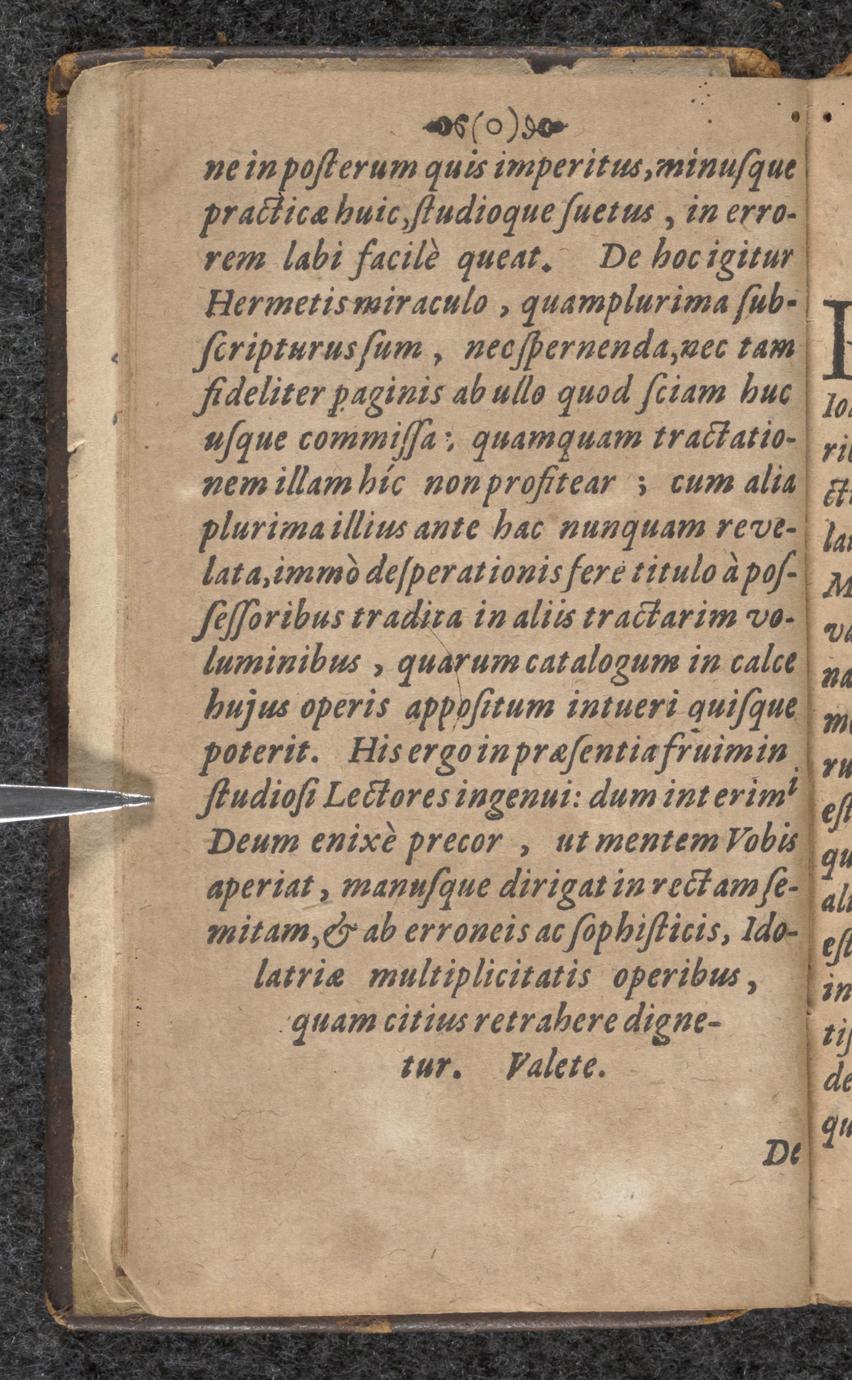 (o)
ne in posterum quis imperitus, minusque
practicæ huic, studioque suetus, in erro-
rem labi facilè queat. De hoc igitur
Hermetis miraculo, quamplurima sub-
scripturus sum, nec spernenda, nec tam
fideliter paginis ab ullo quod sciam huc
usque commissa; quamquam tractatio-
nem illam híc non profitear; cum alia
plurima illius ante hac nunquam reve-
lata, immò desperationis fere titulo à pos-
sessoribus tradita in aliis tractarim vo-
luminibus, quarum catalogum in calce
hujus operis appositum intueri quisque
poterit. His ergo in præsentia fruimini
studiosi Lectores ingenui: dum interim
Deum enixè precor, ut mentem Vobis
aperiat, manusque dirigat in rectam se-
mitam, & ab erroneis ac sophisticis, Ido-
latriæ multiplicitatis operibus,
quam citius retrahere digne-
tur. Valete.
De